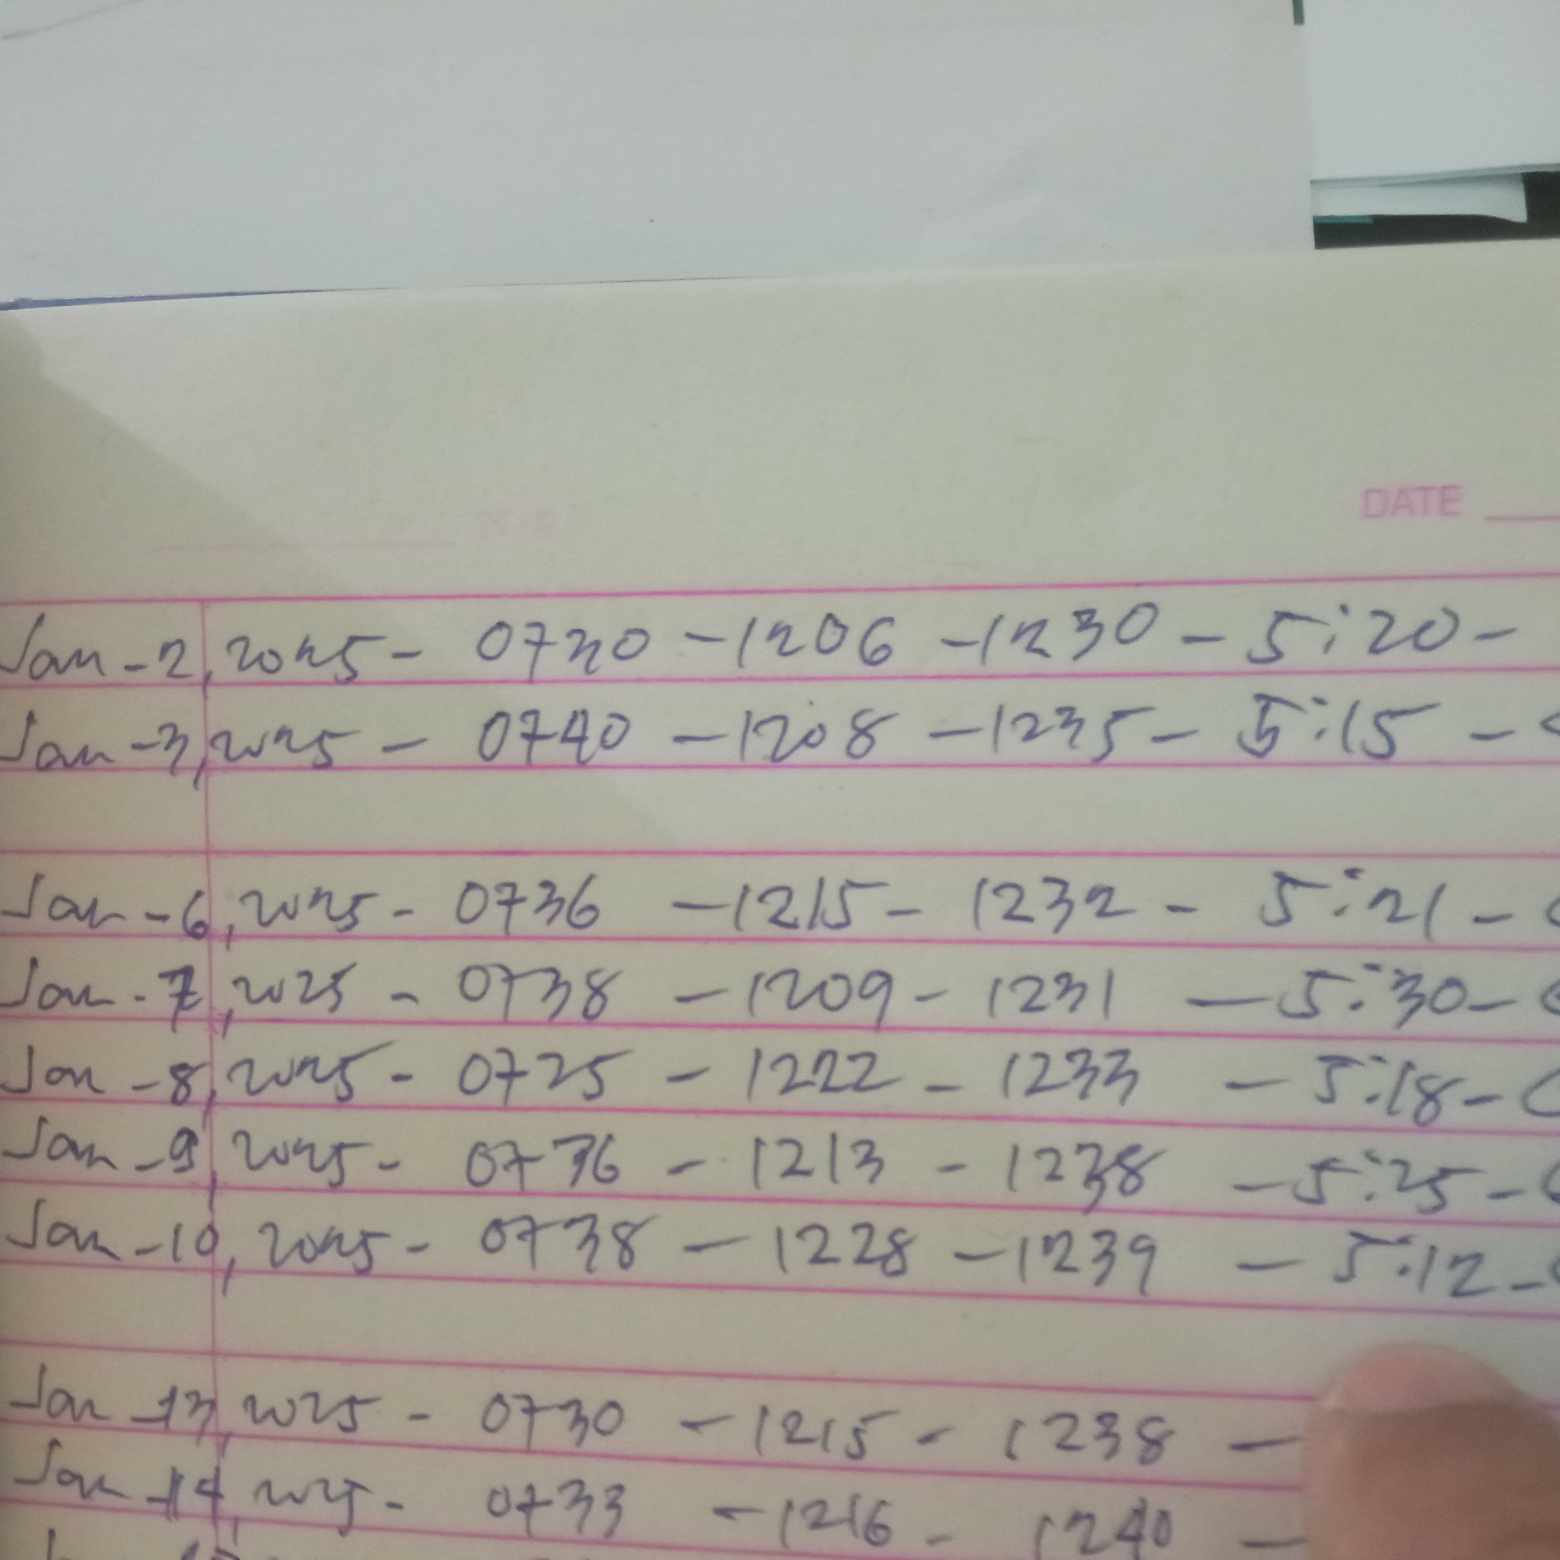 DATE
Jan-2, 2025 - 0730 - 1206 - 1230 - 5:20 -
Jan-3, 2025 - 0740 - 1208 - 1235 - 5:15 -
Jan-6, 2025 - 0736 - 1215 - 1232 - 5:21 -
Jan-7, 2025 - 0738 - 1209 - 1231 - 5:30 -
Jan-8, 2025 - 0725 - 1222 - 1233 - 5:18 -
Jan-9, 2025 - 0736 - 1213 - 1238 - 5:25 -
Jan-10, 2025 - 0738 - 1228 - 1239 - 5:12 -
Jan-13, 2025 - 0730 - 1215 - 1238 -
Jan-14, 2025 - 0733 - 1216 - 1240 -